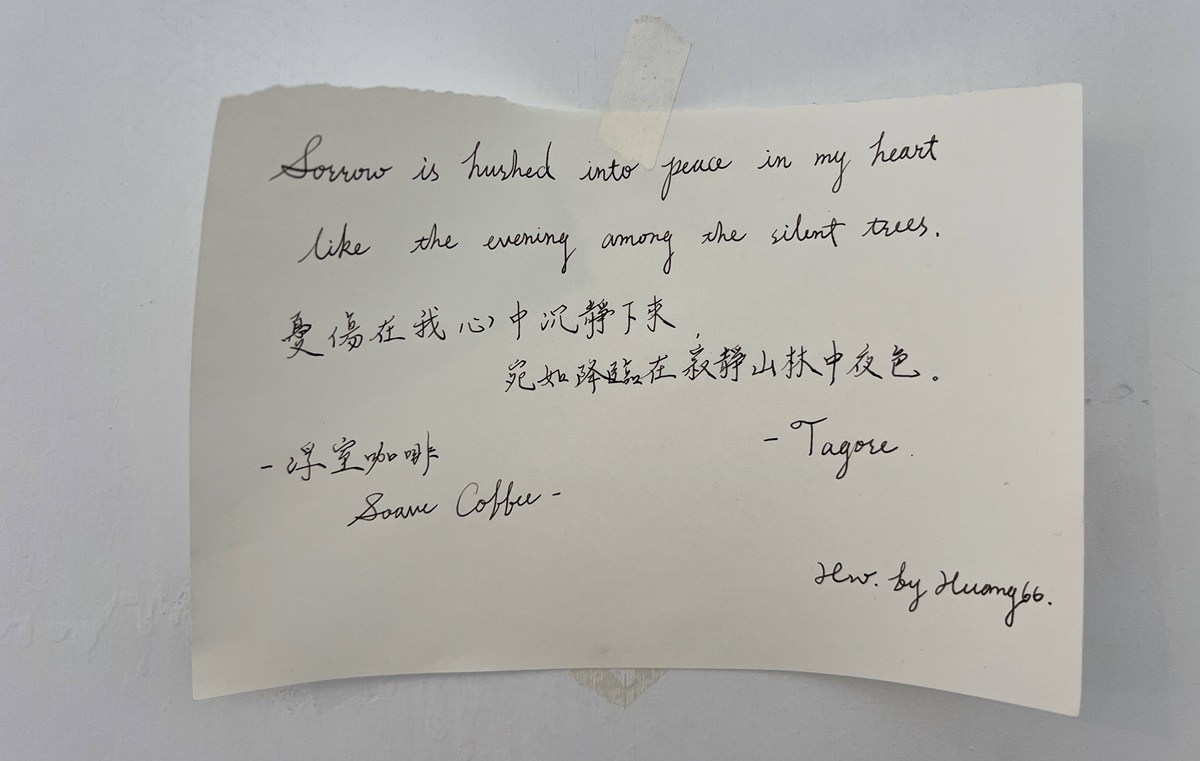 Sorrow is hushed into peace in my heart
like the evening among the silent trees.
憂傷在我心中沉靜下來，
宛如降臨在寂靜山林中夜色。
- Tagore.
- 浮室咖啡
Soave Coffee -
Hw. by Huang66.